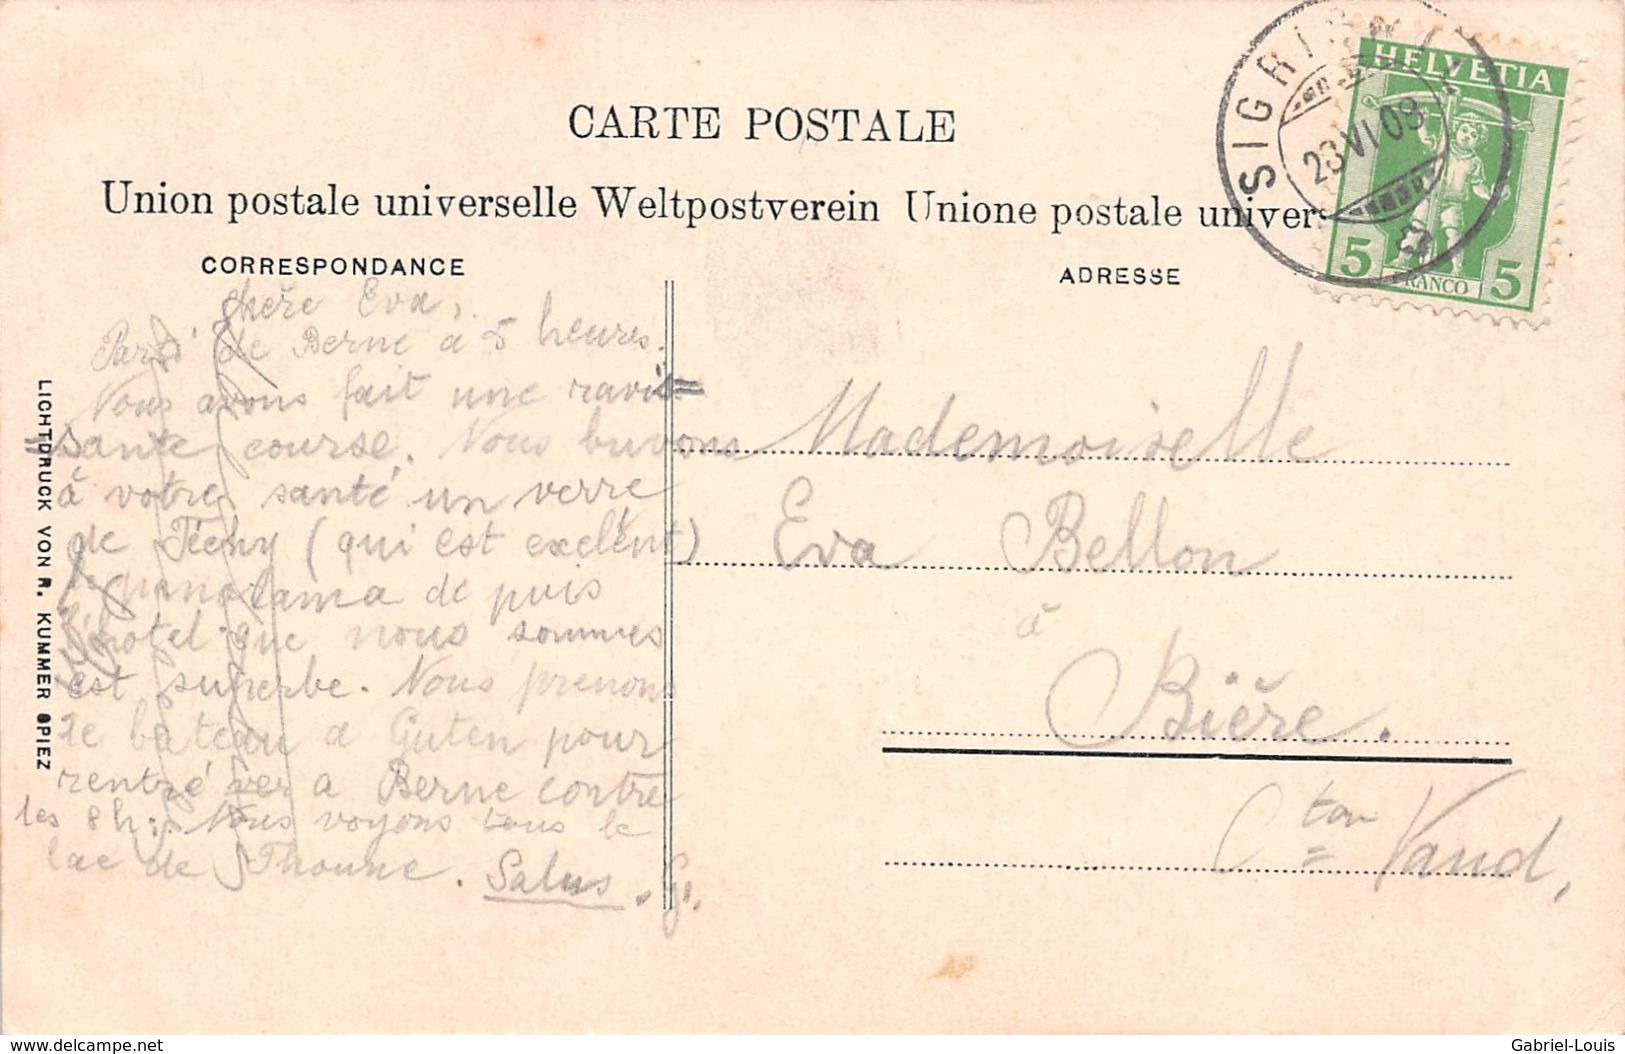 CARTE POSTALE
Union postale universelle Weltpostverein Unione postale univer
CORRESPONDANCE
ADRESSE
HELVETIA
5 FRANCO 5
SIGRIS
23 VI 08
LICHTDRUCK VON R. KUMMER SPIEZ
chère Eva,
Parti de Berne à 5 heures.
Nous avons fait une ravis=
=sante course. Nous buvons
à votre santé un verre
de (qui est exclent)
panorama de puis
l'hotel que nous sommes
est superbe. Nous prenons
le bateau a Guten pour
rentré ver a Berne contre
les 8h. Nous voyons tous le
lac de Thoune. Salus. G.
Mademoiselle
Eva Bellon
à
Bière.
Cton Vaud,
delcampe.net
Gabriel-Louis